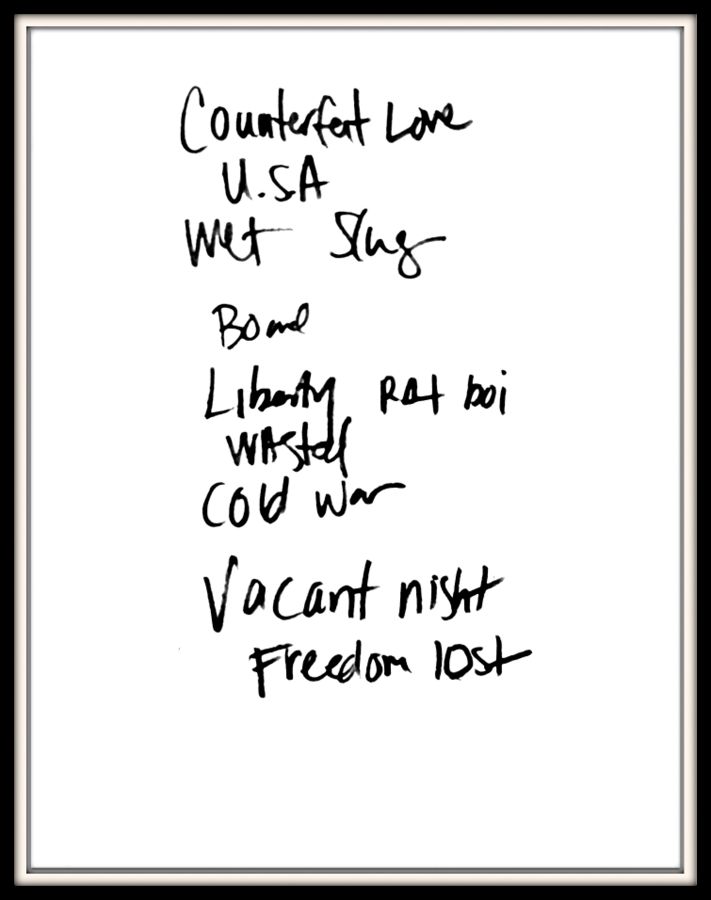 Counterfeit Love
U.S.A
Wet Slug
Liberty RAt boi
WAsted
Cold War
Vacant night
Freedom lost